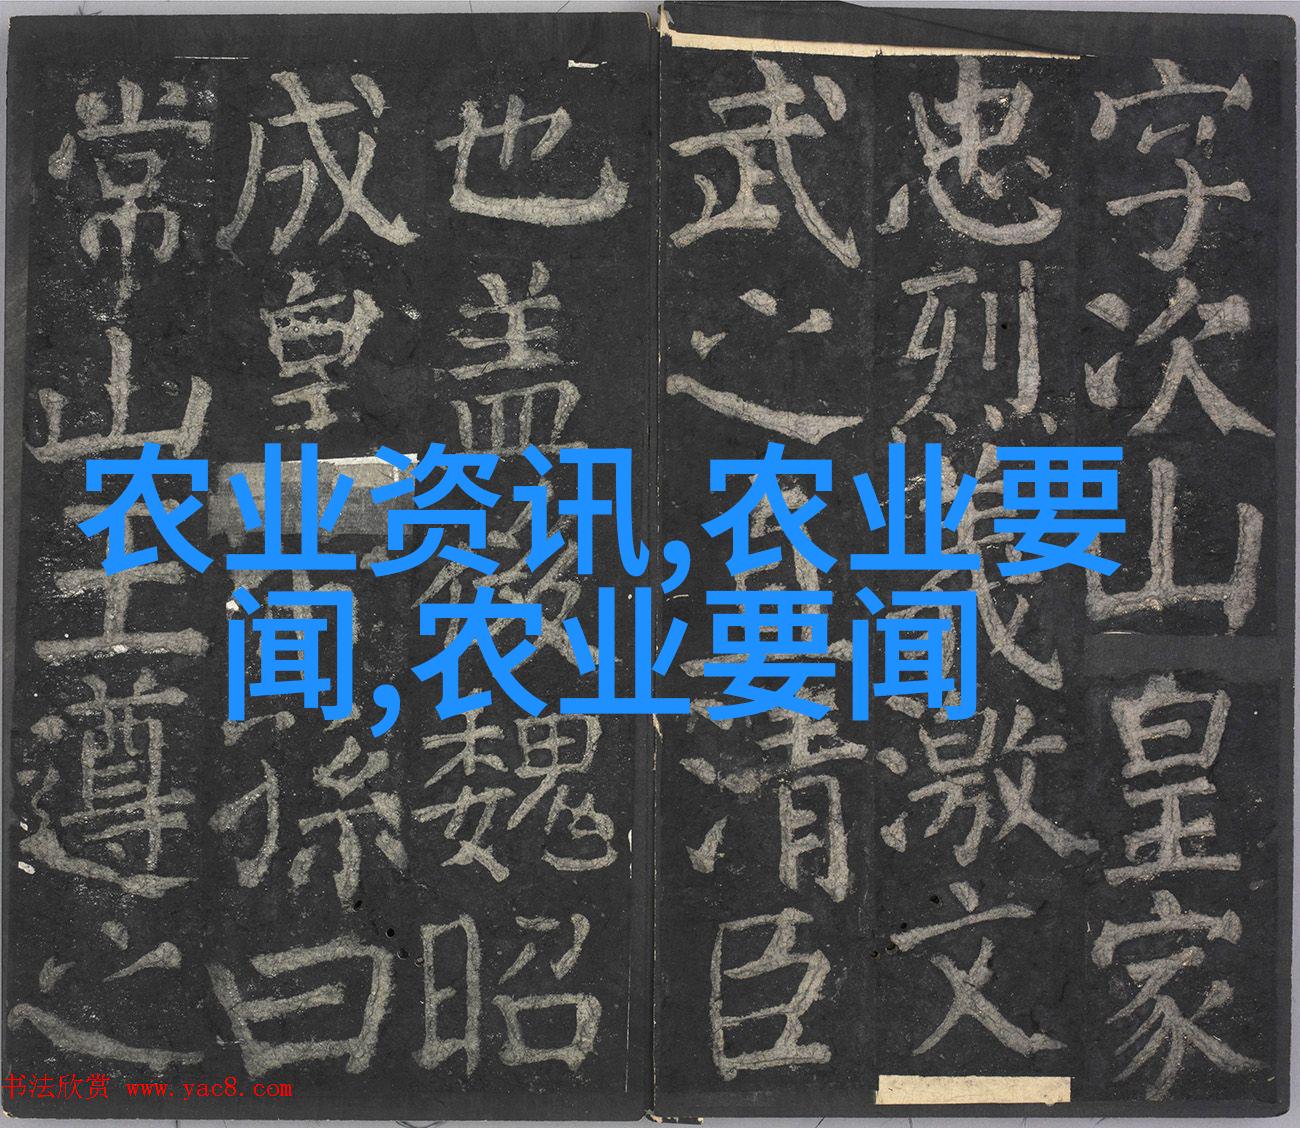 字次山皇家
忠烈義激文
武之清臣
也盖後魏昭
成皇孫曰
常山王遵之
农业资讯,农业要
闻,农业要闻
书法欣赏 www.yac8.com